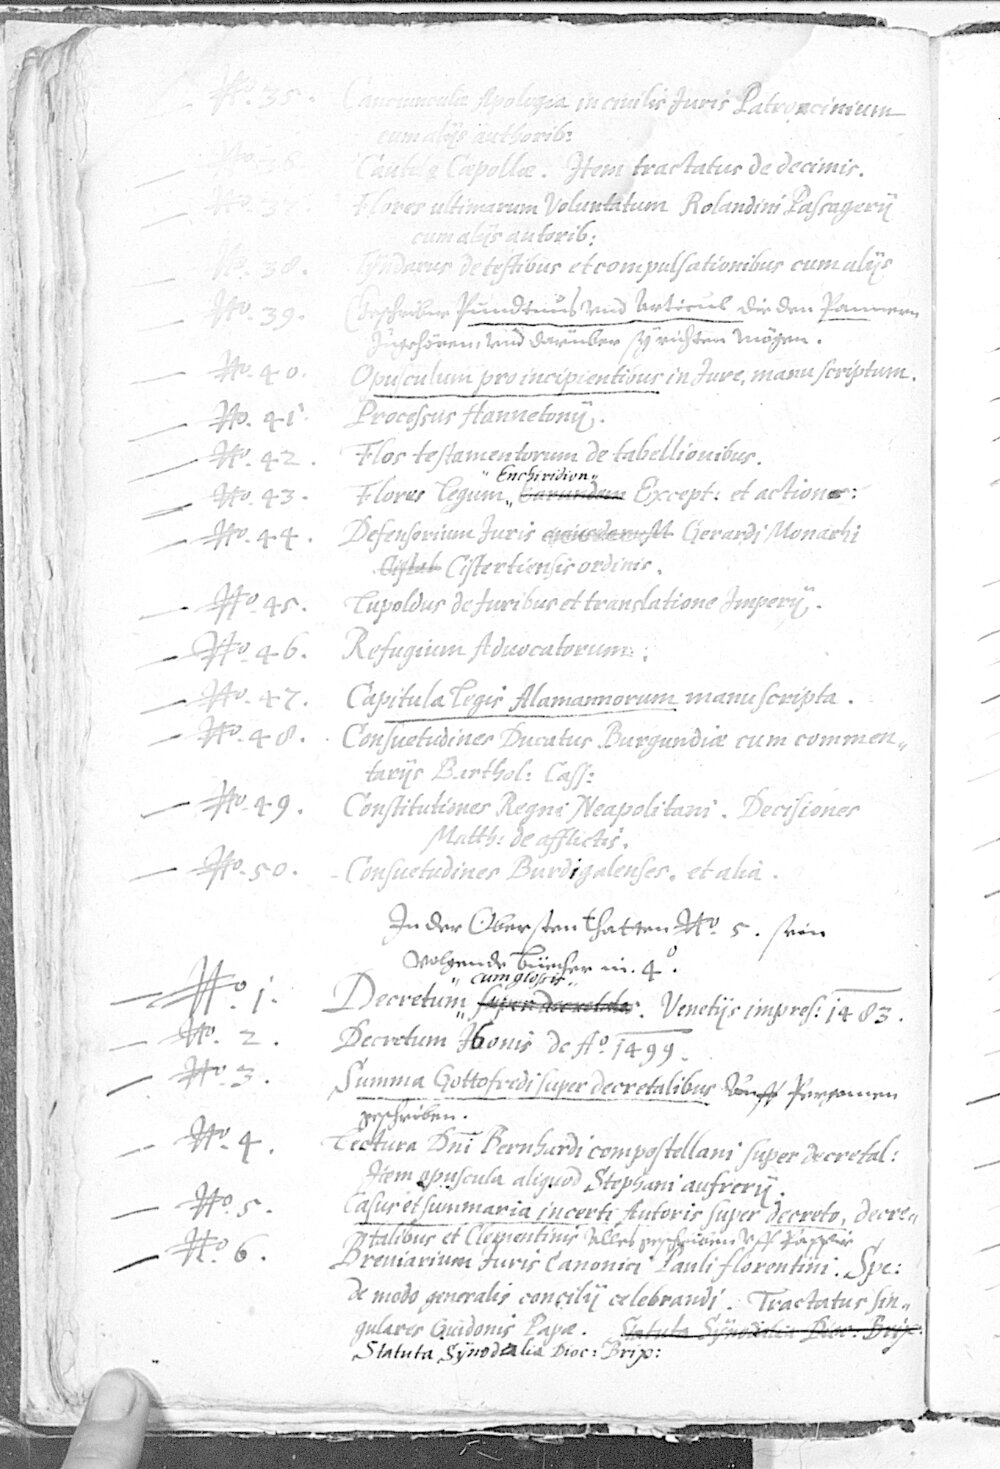 No. 35. Cantiunculae Apologia in civilis Juris Patrocinium
cum alijs authorib:
No. 36. Cautelae Capollae. Item tractatus de decimis.
No. 37. Flores ultimarum Voluntatum Rolandini Passagerij
cum alijs autorib:
No. 38. Tyndarus de testibus et compulsationibus cum alijs
No. 39. Geschribne Pundtnus und Articul die den
Zugehören, und darüber sy richten mögen.
No. 40. Opusculum pro incipientibus in Jure, manuscriptum.
No. 41. Processus Hannetonij.
No. 42. Flos testamentorum de tabellionibus.
"Enchiridion"
No. 43. Flores Legum, Earundem Except: et actiones:
No. 44. Defensorium Juris Gerardi Monachi
Cistertiensis ordinis.
No. 45. Lupoldus de Juribus et translatione Imperij.
No. 46. Refugium Advocatorum.
No. 47. Capitula Legis Alamannorum manuscripta.
No. 48. Consuetudines Ducatus Burgundiae cum commen„
tarijs Barthol: Cass:
No. 49. Constitutiones Regni Neapolitani. Decisiones
Matth: de afflictis.
No. 50. Consuetudines Burdigalenses. et alia.
In der Obersten Schatten No. 5. sein
volgende Büecher in. 4o.
"cum glossis"
No. 1. Decretum super decretales. Venetijs impress: 1483.
No. 2. Decretum Ivonis de Ao. 1499.
No. 3. Summa Gottofredi super decretalibus Auff Pergamen
geschriben.
No. 4. Lectura Dni Bernhardi compostellani super decretal:
Item opuscula aliquod Stephani aufrerij.
No. 5. Casus et summaria incerti Autoris super decreto, decre„
talibus et Clementinis Alles geschriben uff Papyir
No. 6. Breviarium Juris Canonici Pauli florentini. Spe:
de modo generalis concilij celebrandi. Tractatus sin„
gulares Guidonis Papae. Statuta Synodalia Dioc: Brix:
Statuta Synodalia Dioc: Brix: